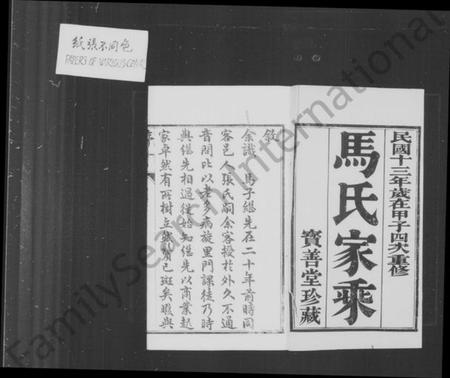 紙張不同色
PAPERS OF VARIOUS COLOR
民國十三年歲在甲子四次重修
馬氏家乘
寶善堂珍藏
敘
余識馬子繼先在二十年前時同
客邑人張氏嗣余客授於外久不通
音問比以老多病旋里門課徒乃時
與繼先相過從始知繼先以商業起
家卓然有所樹立然鬚已斑矣暇與
FamilySearch International